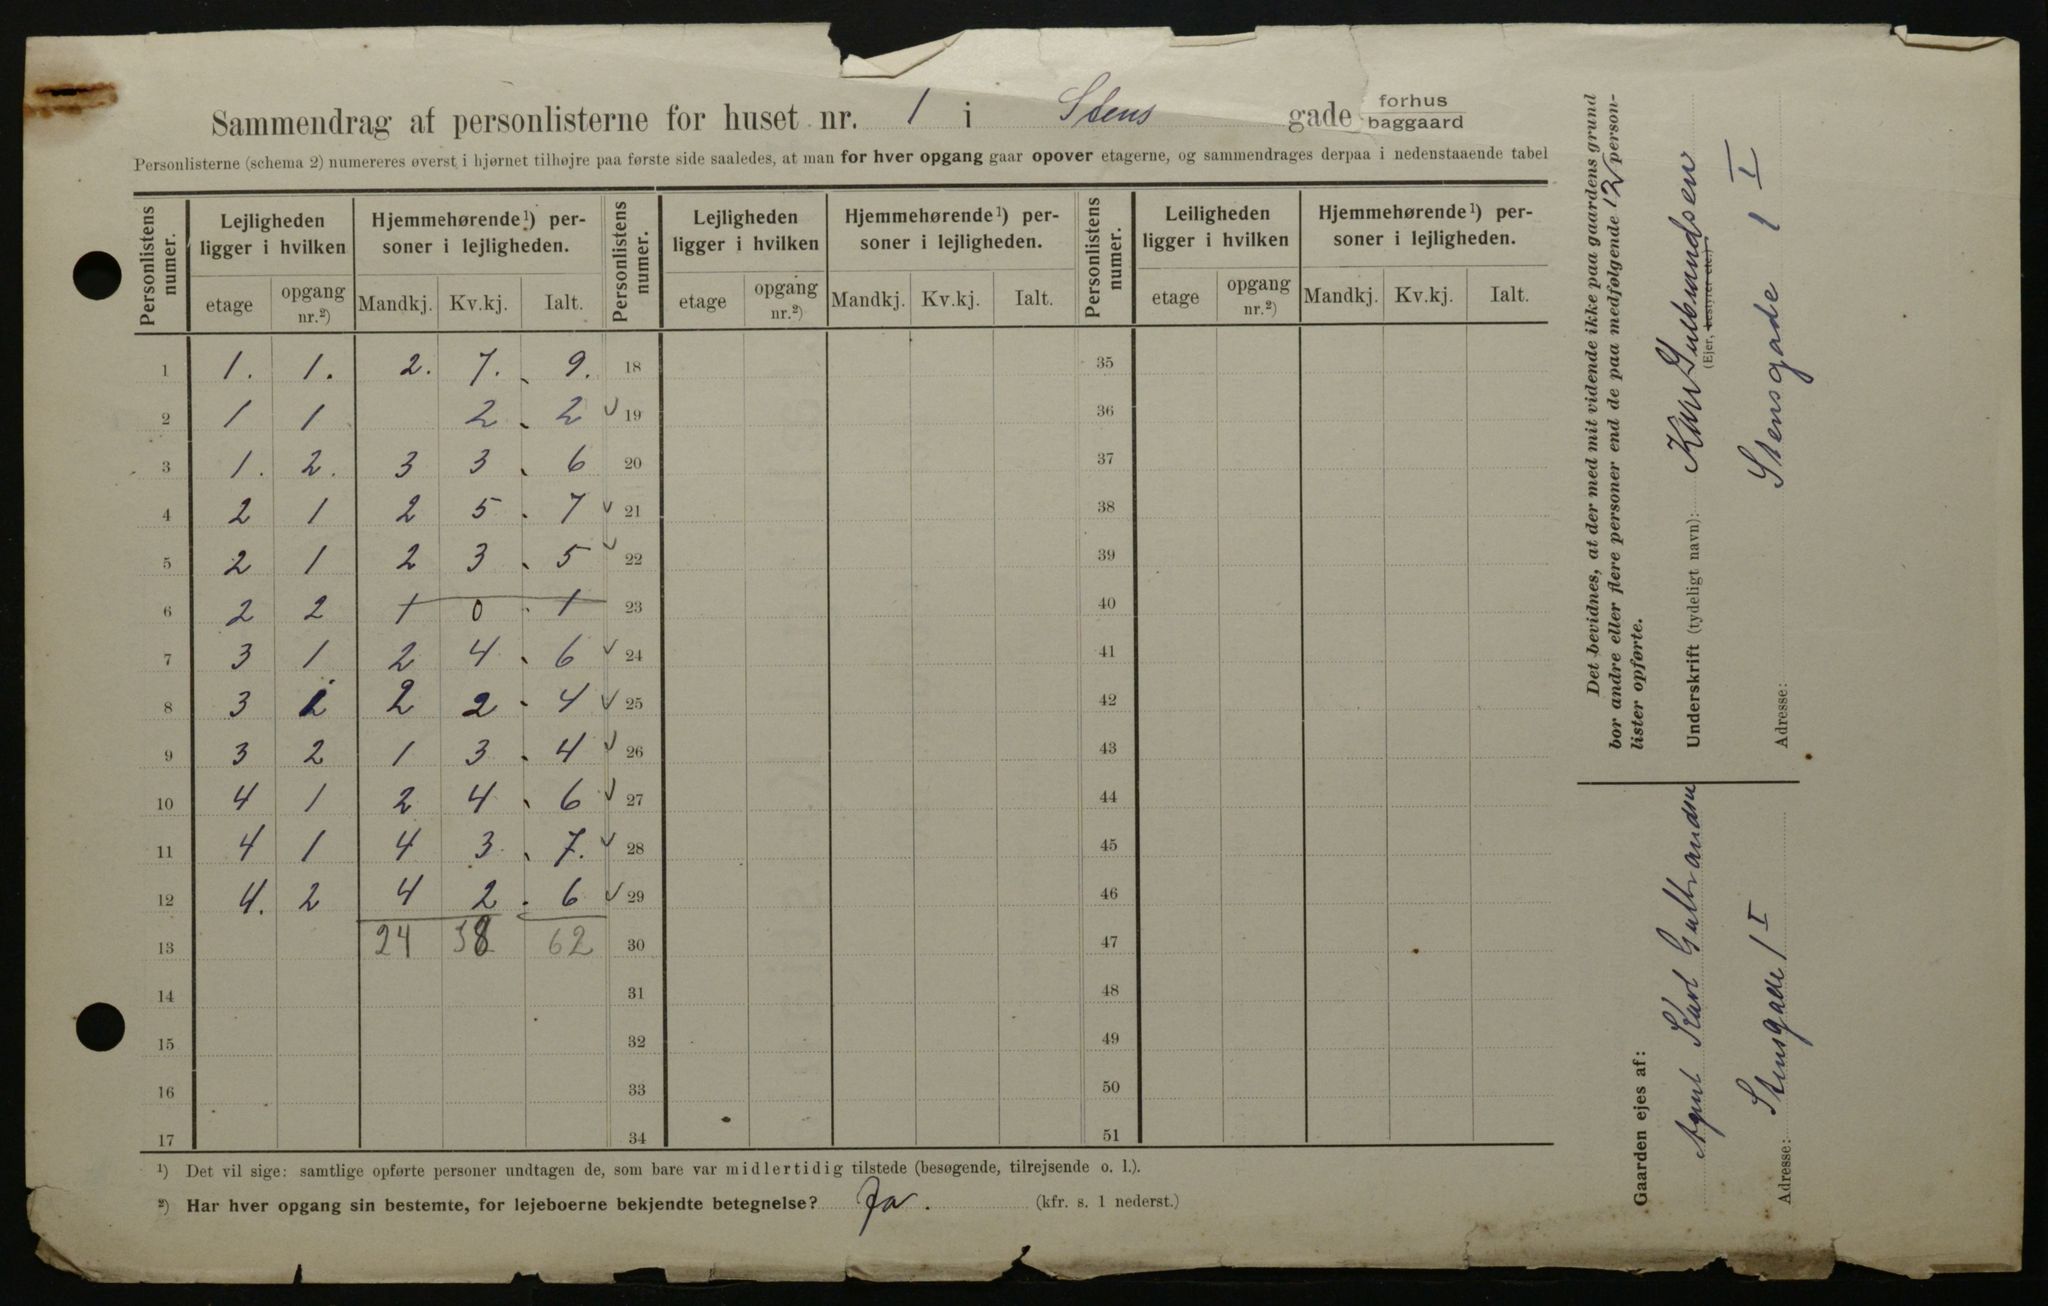 Sammendrag af personlisterne for huset nr. 1 i Stens gade forhus baggaard
Personlisterne (schema 2) numereres øverst i hjørnet tilhøjre paa første side saaledes, at man for hver opgang gaar opover etagerne, og sammendrages derpaa i nedenstaaende tabel
Personlistens numer. Lejligheden ligger i hvilken Hjemmehørende¹) personer i lejligheden. Personlistens numer. Lejligheden ligger i hvilken Hjemmehørende¹) personer i lejligheden. Personlistens numer. Leiligheden ligger i hvilken Hjemmehørende¹) personer i lejligheden.
etage opgang nr.²) Mandkj. Kv.kj. Ialt. etage opgang nr.²) Mandkj. Kv.kj. Ialt. etage opgang nr.²) Mandkj. Kv.kj. Ialt.
1 1. 1. 2. 7. 9. 18 35
2 1 1 2 2 19 36
3 1. 2. 3 3 6 20 37
4 2 1 2 5 7 21 38
5 2 1 2 3 5 22 39
6 2 2 1 0 1 23 40
7 3 1 2 4 6 24 41
8 3 1 2 2 4 25 42
9 3 2 1 3 4 26 43
10 4 1 2 4 6 27 44
11 4 1 4 3 7. 28 45
12 4. 2 4 2 6 29 46
13 24 38 62 30 47
14 31 48
15 32 49
16 33 50
17 34 51
¹) Det vil sige: samtlige opførte personer undtagen de, som bare var midlertidig tilstede (besøgende, tilrejsende o. l.).
²) Har hver opgang sin bestemte, for lejeboerne bekjendte betegnelse? Ja. (kfr. s. 1 nederst.)
Det bevidnes, at der med mit vidende ikke paa gaardens grund
bor andre eller flere personer end de paa medfølgende 12 person-
lister opførte.
Underskrift (tydeligt navn): Karl Gulbrandsen
(Ejer, bestyrer etc.)
Adresse: Stensgade 1 I
Gaarden ejes af:
Agent Karl Gulbrandsen
Adresse: Stensgade 1 I